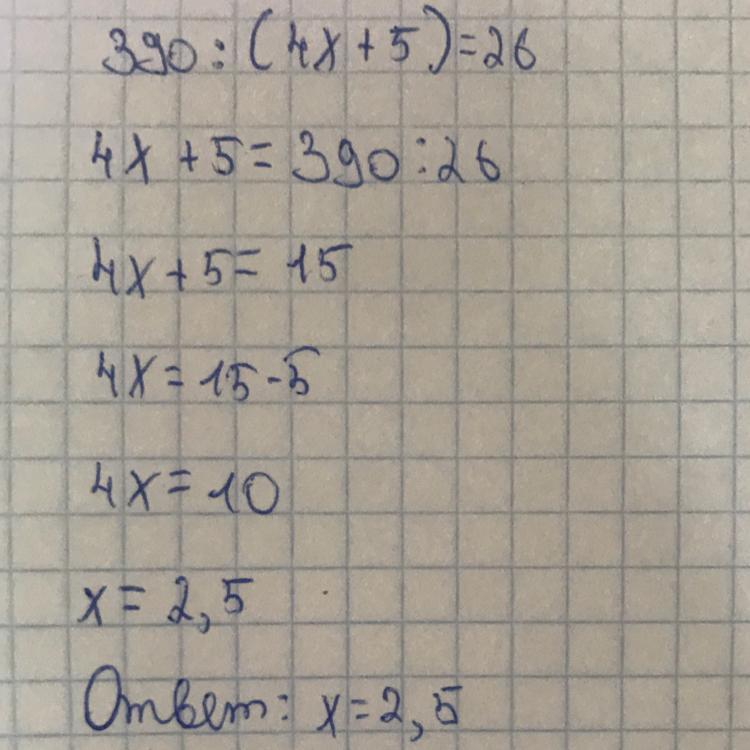 390:(4x+5)=26
4x+5=390:26
4x+5=15
4x=15-5
4x=10
x=2,5
Ответ: x=2,5